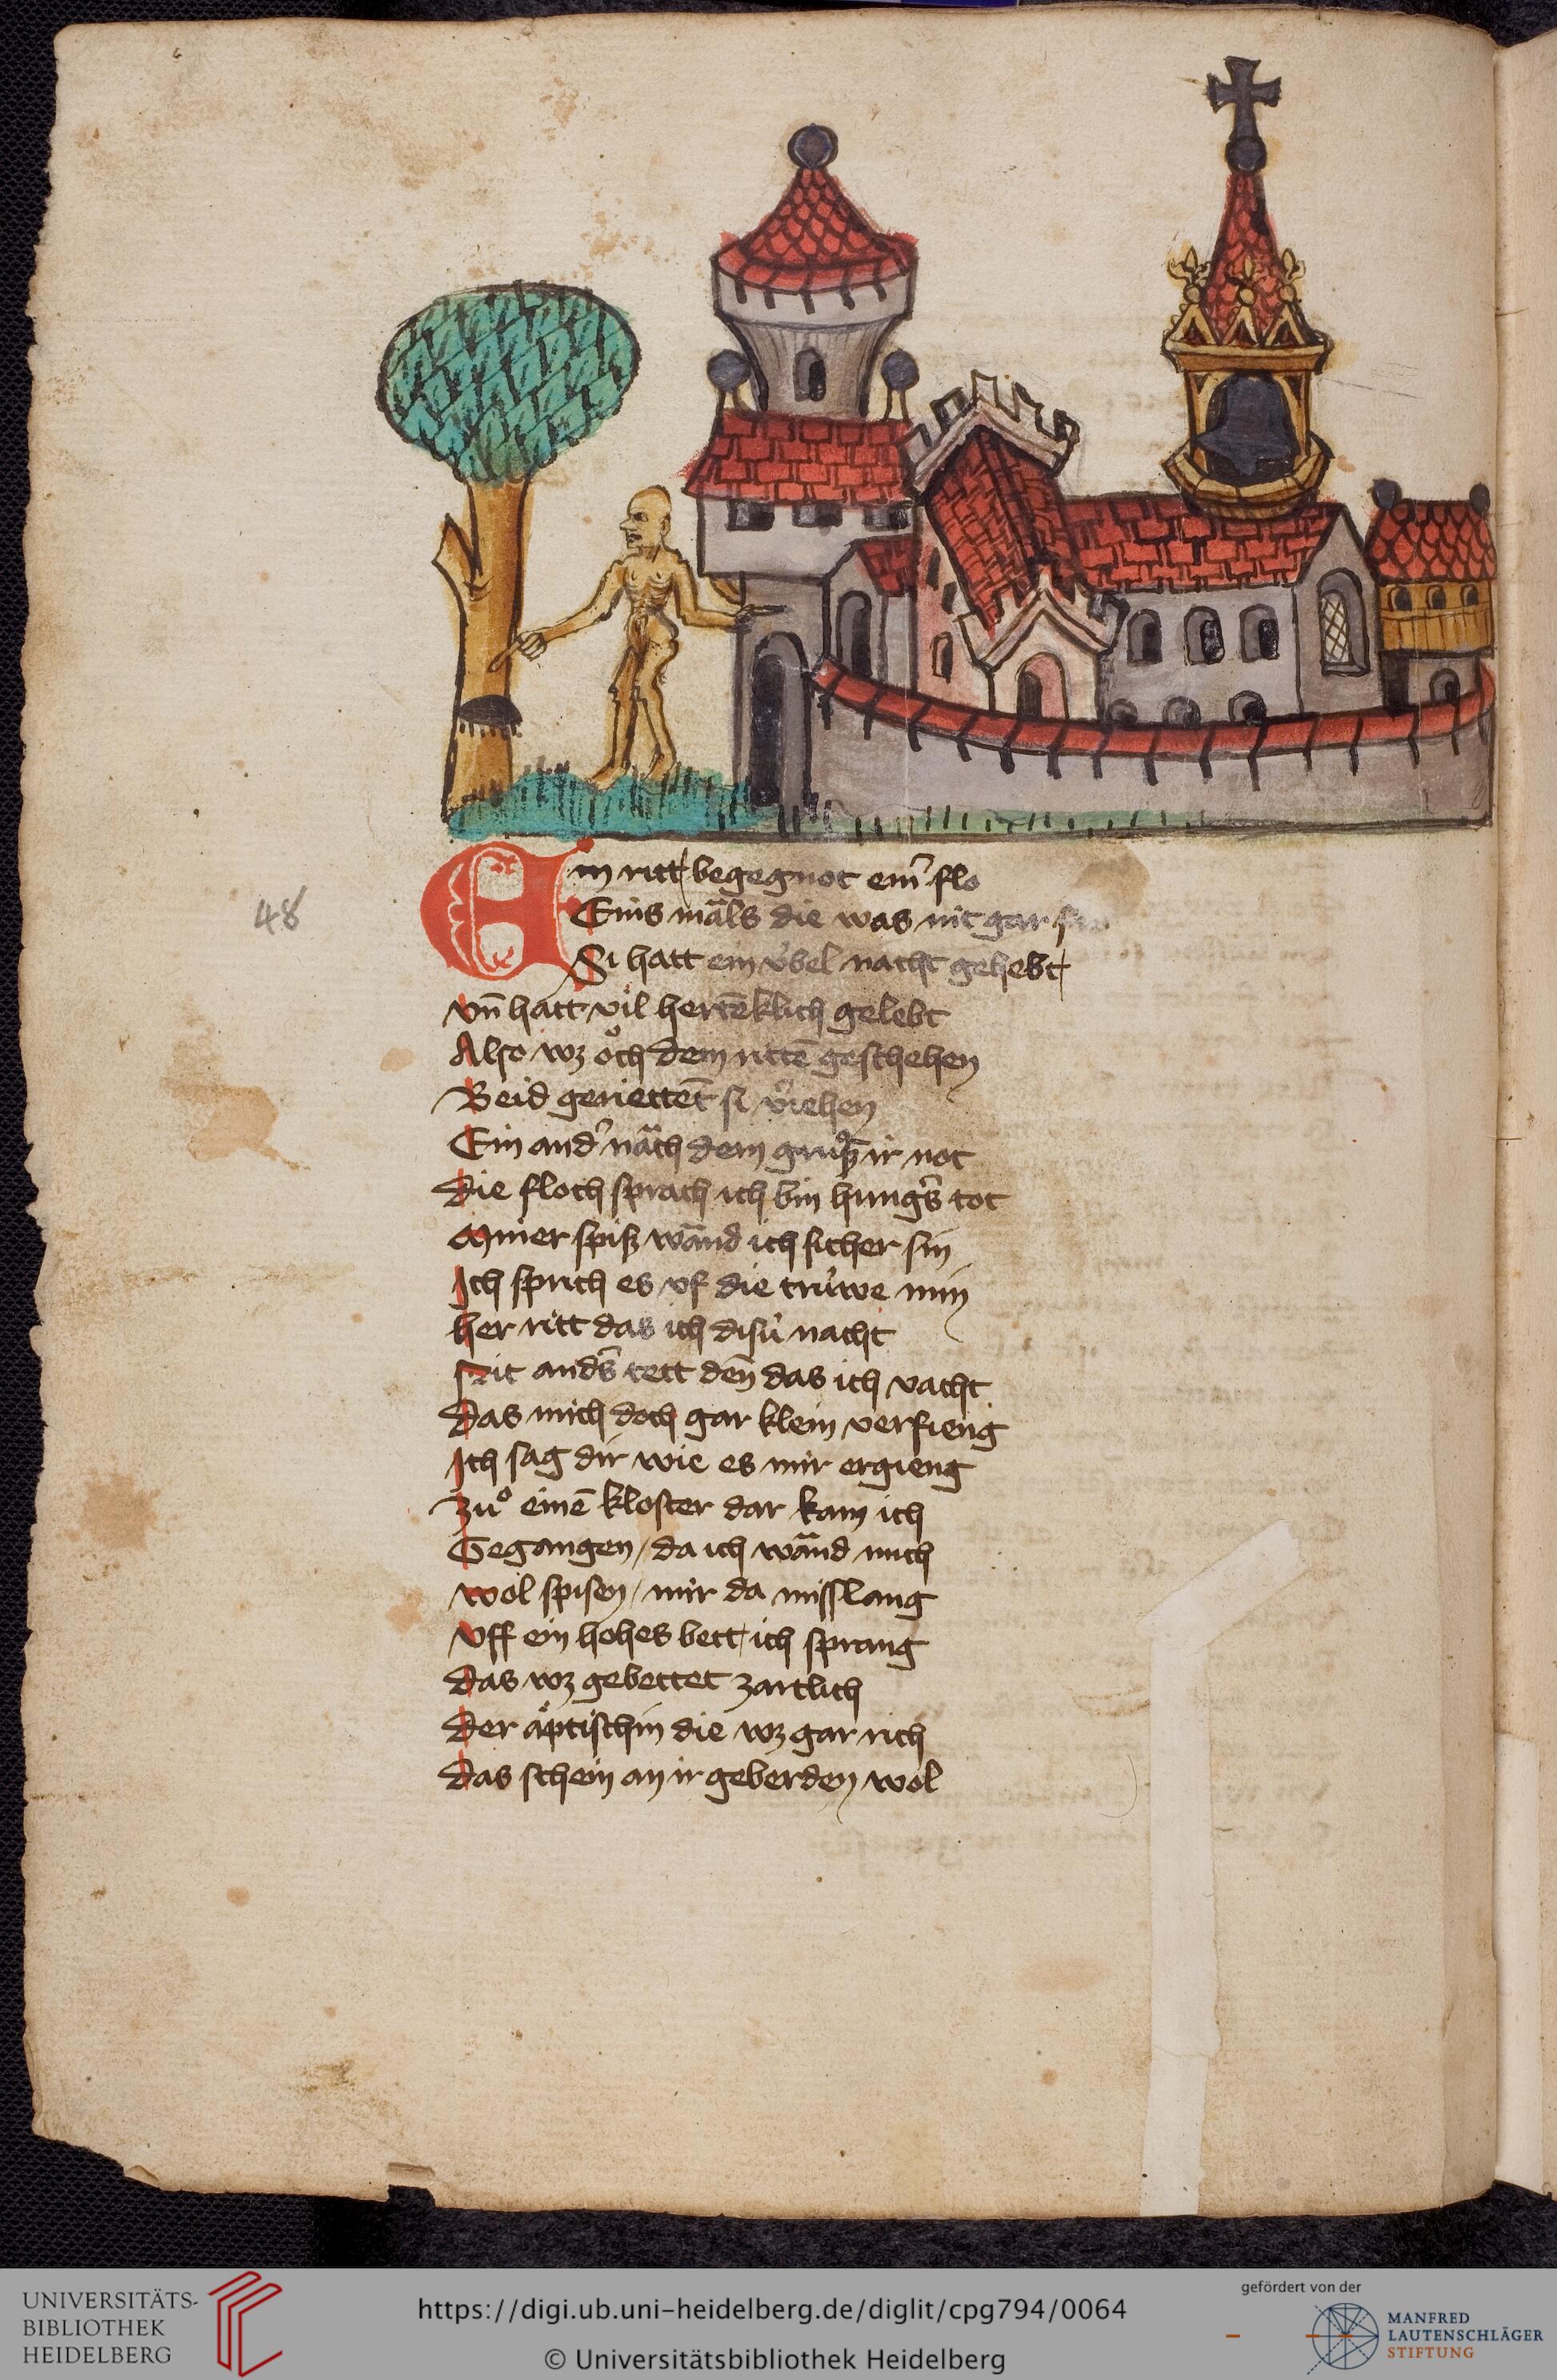 48
Ein ritt begegnot eim̄ flo
Eins mâls die was nit gar
Si hatt ein v̈bel nacht gehebt
vn̄ hatt vil hertēklich gelebt
Also wz oͮch dem rittē geschehen
Beid geriettēt si v̓iehen
Ein and̓ nâch dem gruͦsz ir not
die floch sprach ich bin hung̓s tot
Miner spisz wând ich sicher sin
Ich sprich es vf die trúwe min
her ritt das ich disú nacht
Nit and̓s tett den̄ das ich vacht
Das mich doch gar klein verfieng
Ich sag dir wie es mir ergieng
Zuͦ einē kloster dar kam ich
Gegangen / da ich wând mich
wol spisen / mir da misslang
vff ein hohes bett ich sprang
das wz gebettet zartlich
Der äptischin die wz gar rich
Das schein an ir geberden wol
UNIVERSITÄTS-
BIBLIOTHEK
HEIDELBERG
https://digi.ub.uni-heidelberg.de/diglit/cpg794/0064
© Universitätsbibliothek Heidelberg
gefördert von der
MANFRED
LAUTENSCHLÄGER
STIFTUNG